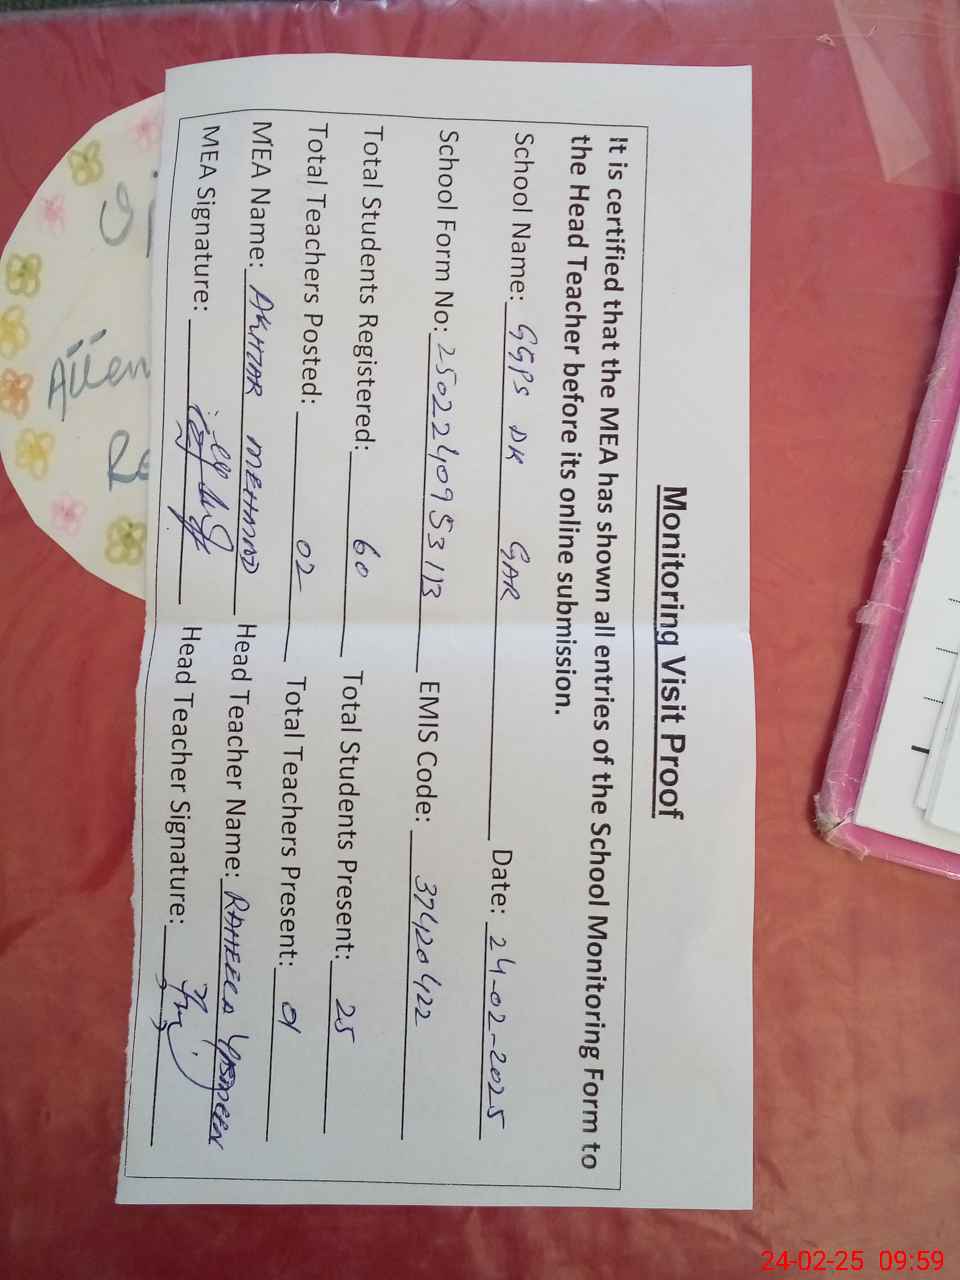 Monitoring Visit Proof
It is certified that the MEA has shown all entries of the School Monitoring Form to
the Head Teacher before its online submission.
School Name: GGPS DK GAR Date: 24-02-2025
School Form No: 2502240953113 EMIS Code: 37420422
Total Students Registered: 60 Total Students Present: 25
Total Teachers Posted: 02 Total Teachers Present: 01
MEA Name: AKHTAR MEHMOOD Head Teacher Name: RAHEELA YASMEEN
MEA Signature: Head Teacher Signature:
Atten
Re
24-02-25 09:59